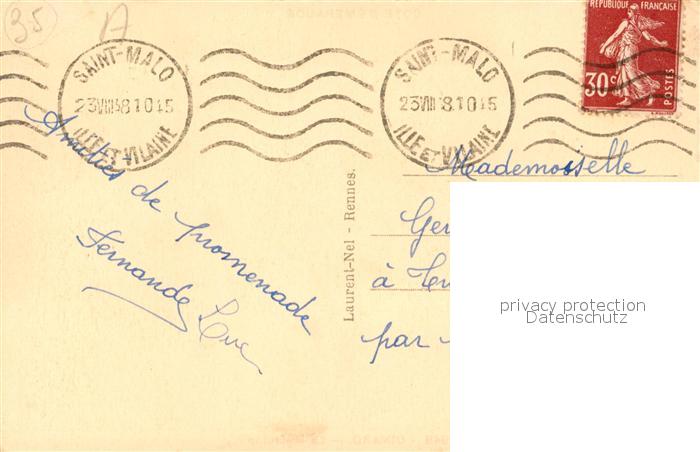 35 A
SAINT-MALO
23 VIII 38 10 45
ILLE ET VILAINE
SAINT-MALO
23 VIII 38 10 45
ILLE ET VILAINE
RÉPUBLIQUE FRANÇAISE
30 c
POSTES
Amitiés de promenade
Fernande
Laurent-Nel - Rennes.
Mademoiselle
Ger
à
par
privacy protection
Datenschutz